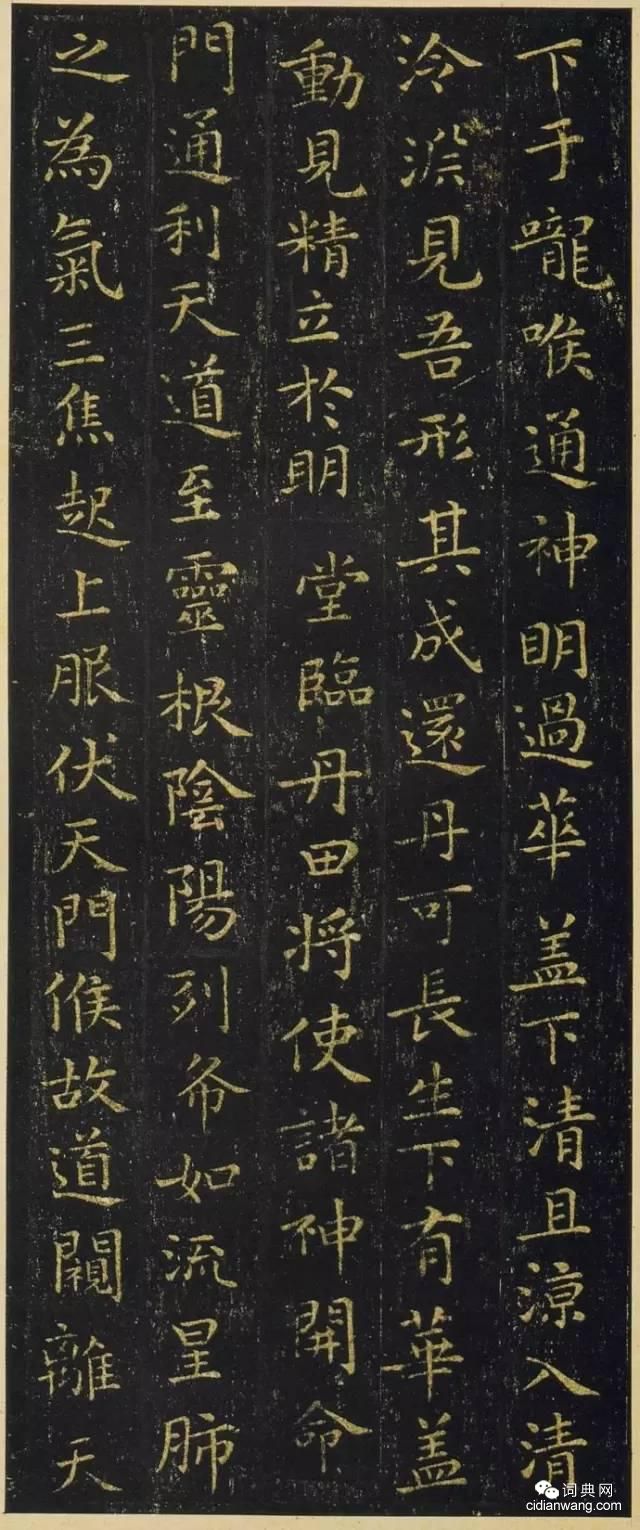 下于嚨喉通神明過華盖下清且涼入清
泠淵見吾形其成還丹可長生下有華盖
動見精立於明堂臨丹田将使諸神開命
門通利天道至靈根陰陽列布如流星肺
之為氣三焦起上服伏天門候故道闚離天
词典网
cidianwang.com